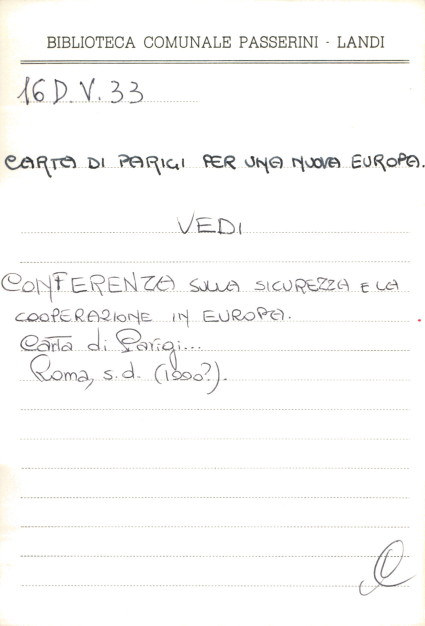 BIBLIOTECA COMUNALE PASSERINI - LANDI
16 D.V. 33
CARTA DI PARIGI PER UNA NUOVA EUROPA.
VEDI
CONFERENZA SULLA SICUREZZA E LA
COOPERAZIONE IN EUROPA.
Carta di Parigi...
Roma, s.d. (1990?).